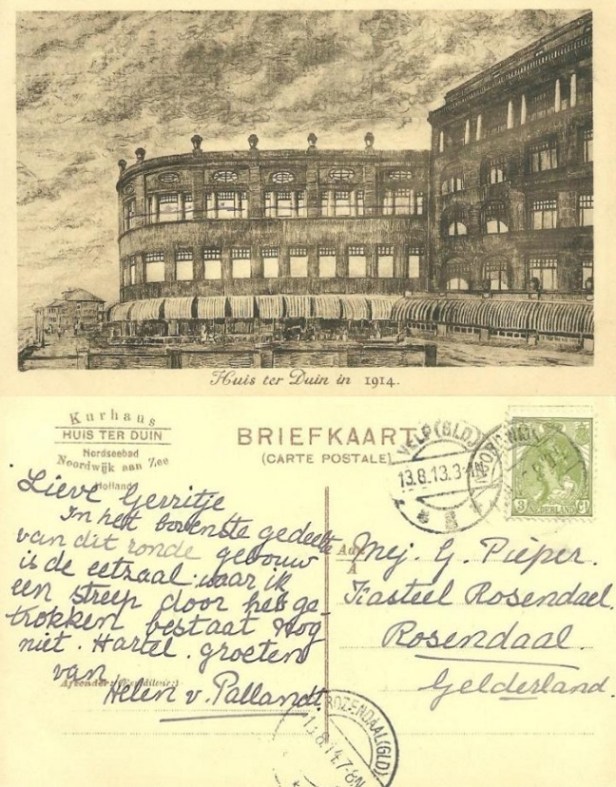 Huis ter Duin in 1914.
Kurhaus
HUIS TER DUIN
Nordseebad
Noordwijk aan Zee
Holland
BRIEFKAART
(CARTE POSTALE)
VELP (GLD)
13.8.13.3-4N
NOORDWIJK
NEDERLAND
Lieve Gerritje
In het bovenste gedeelte
van dit ronde gebouw
is de eetzaal. waar ik
een streep door heb ge-
trokken bestaat nog
niet. Hartel. groeten
van
Helen v. Pallandt.
Mej. G. Pieper.
Kasteel Rosendael
Rosendaal.
Gelderland.
ROZENDAAL (GLD)